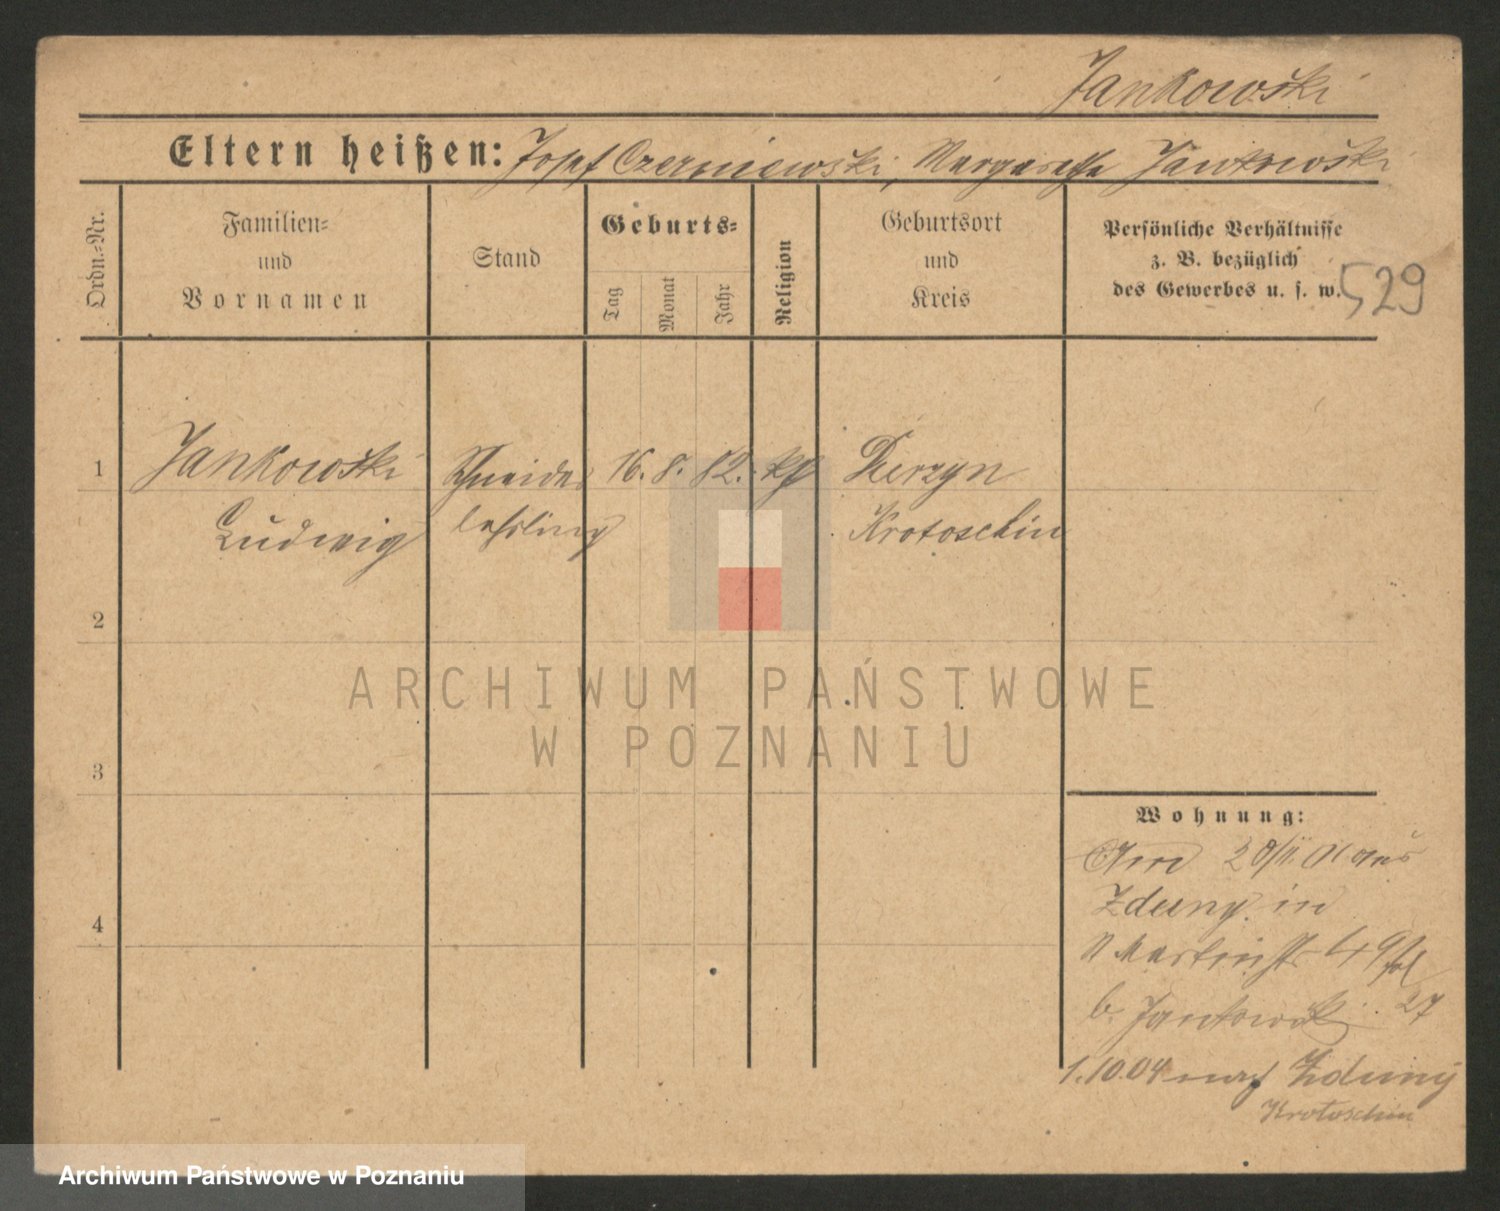 Jankowski
Eltern heißen: Josef Czerniewski, Margarethe Jankowski
Ordn.-Nr.
Familien-
und
Vornamen
Stand
Geburts-
Tag
Monat
Jahr
Religion
Geburtsort
und
Kreis
Persönliche Verhältnisse
z. B. bezüglich
des Gewerbes u. s. w.
529
1 Jankowski Schneider 16. 8. 82. kth
Ludwig lehrling Krotoschin
2
ARCHIWUM PAŃSTWOWE
W POZNANIU
3
Wohnung:
Am 28/11. 01 aus
Zduny in
4
St Martinstr 49
b. Jankowski. 27
1.10.04 nach Zduny
Krotoschin
Archiwum Państwowe w Poznaniu